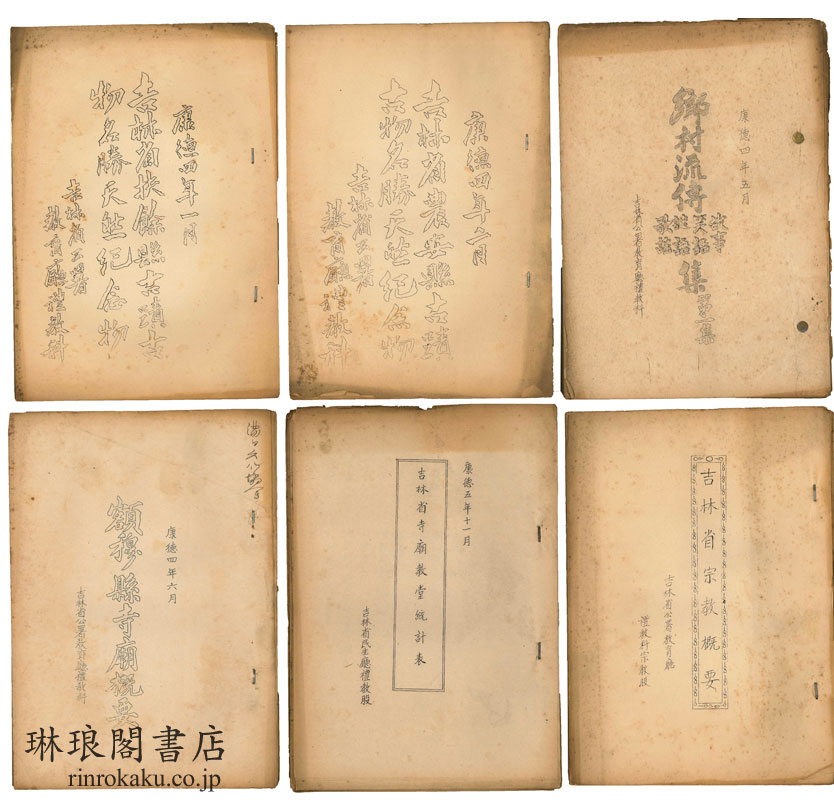 康德四年一月
吉林省扶餘縣古蹟古
物名勝天然紀念物
吉林省公署
教育廳禮教科
康德四年二月
吉林省農安縣古蹟
古物名勝天然紀念物
吉林省公署
教育廳禮教科
康德四年五月
鄉村流傳
故事
笑話
俚語
歌謠
集
第一集
吉林省公署教育廳禮教科
康德四年六月
額穆縣寺廟概要
吉林省公署教育廳禮教科
康德五年十一月
吉林省寺廟教堂統計表
吉林省民生廳禮教股
吉林省宗教概要
吉林省公署教育廳
禮教科宗教股
琳琅閣書店
rinrokaku.co.jp